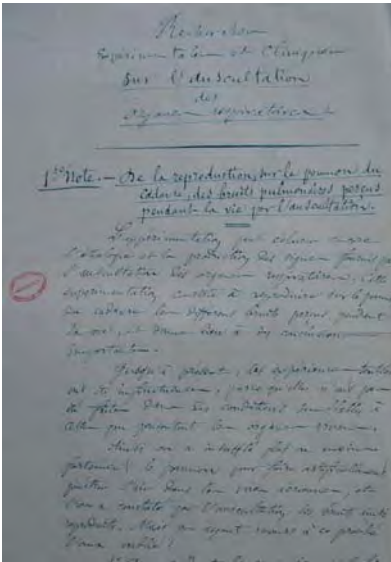 Recherches
Expérimentales et Cliniques
sur l'auscultation
des
organes respiratoires
1re Note. — De la reproduction, sur le poumon du
cadavre, des bruits pulmonaires perçus
pendant la vie par l'auscultation.
L'expérimentation peut éclairer encore
l'étiologie et la production des signes fournis par
l'auscultation des organes respiratoires. Cette
expérimentation consiste à reproduire sur le poumon
du cadavre les différents bruits perçus pendant
la vie, et donne lieu à des conclusions
importantes.
Jusqu'à présent, les expériences tentées
ont été infructueuses, parce qu'elles n'ont pas
été faites dans des conditions semblables à
celles que présentent les organes vivants.
Ainsi on a insufflé plus ou moins
fortement le poumon pour faire artificiellement
pénétrer l'air dans les voies aériennes, et
l'on a constaté par l'auscultation les bruits ainsi
reproduits. Mais en ayant recours à ce procédé
l'on a oublié